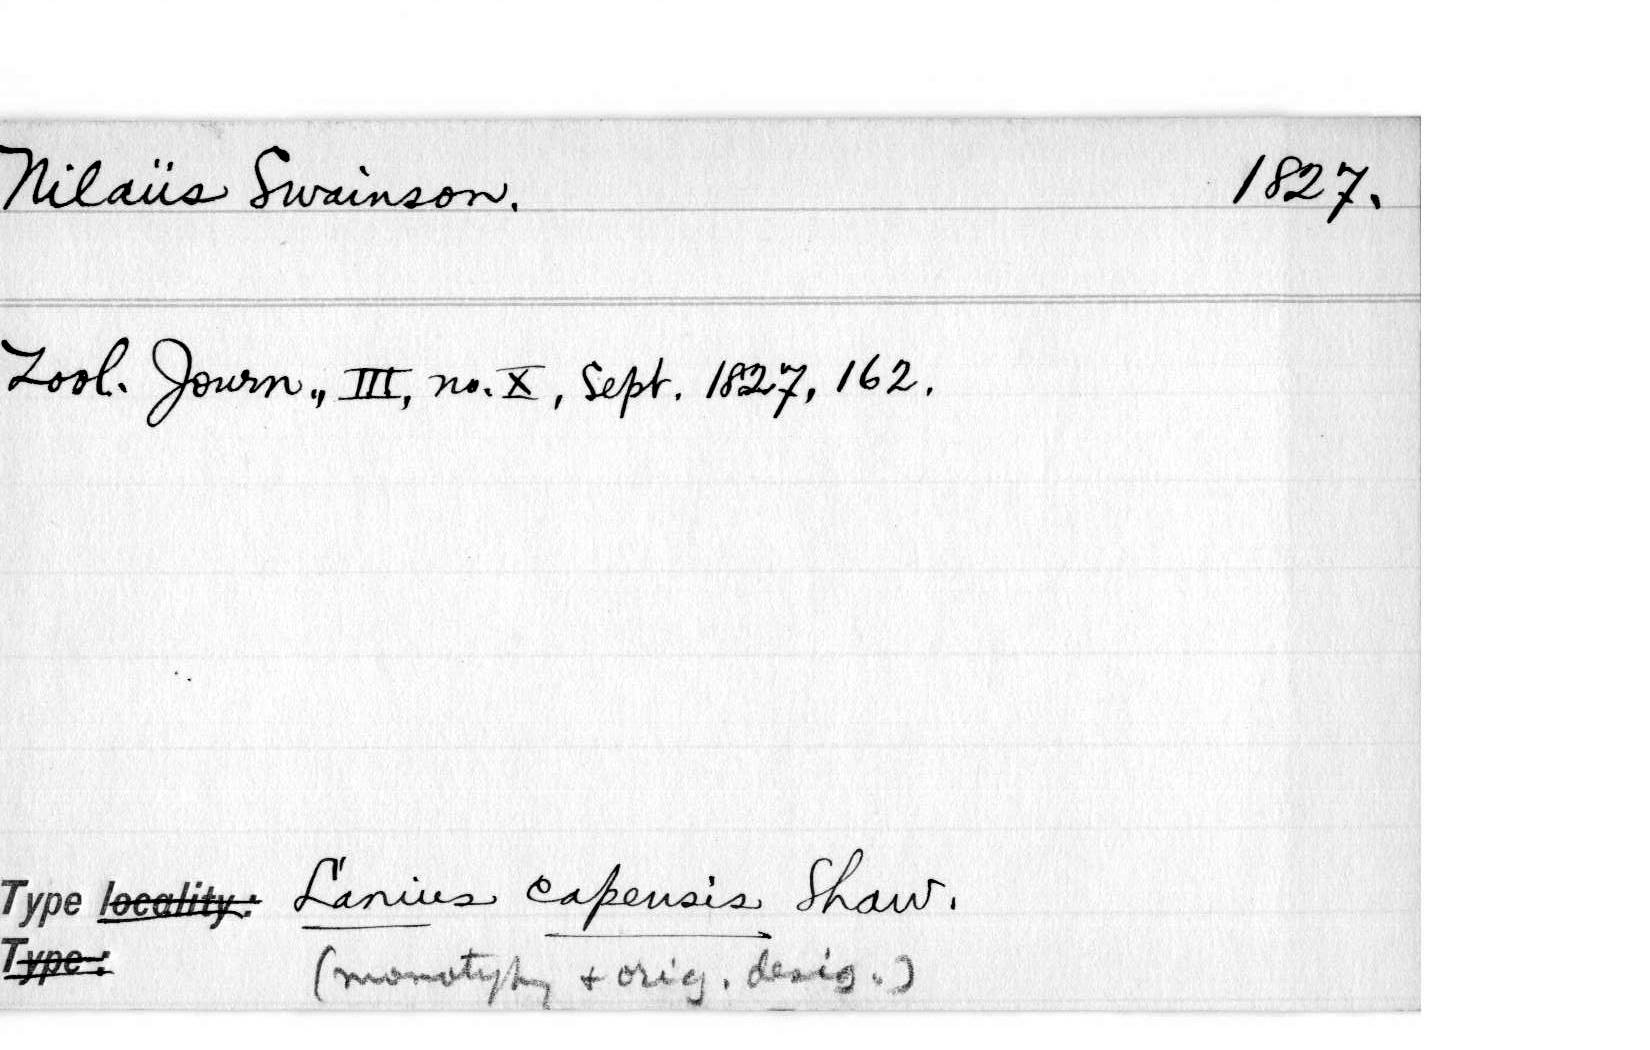 Nilaüs Swainson. 1827.
Zool. Journ., III, no. X, Sept. 1827, 162.
Type locality: Lanius capensis Shaw.
Type:
(monotypy + orig. desig.)